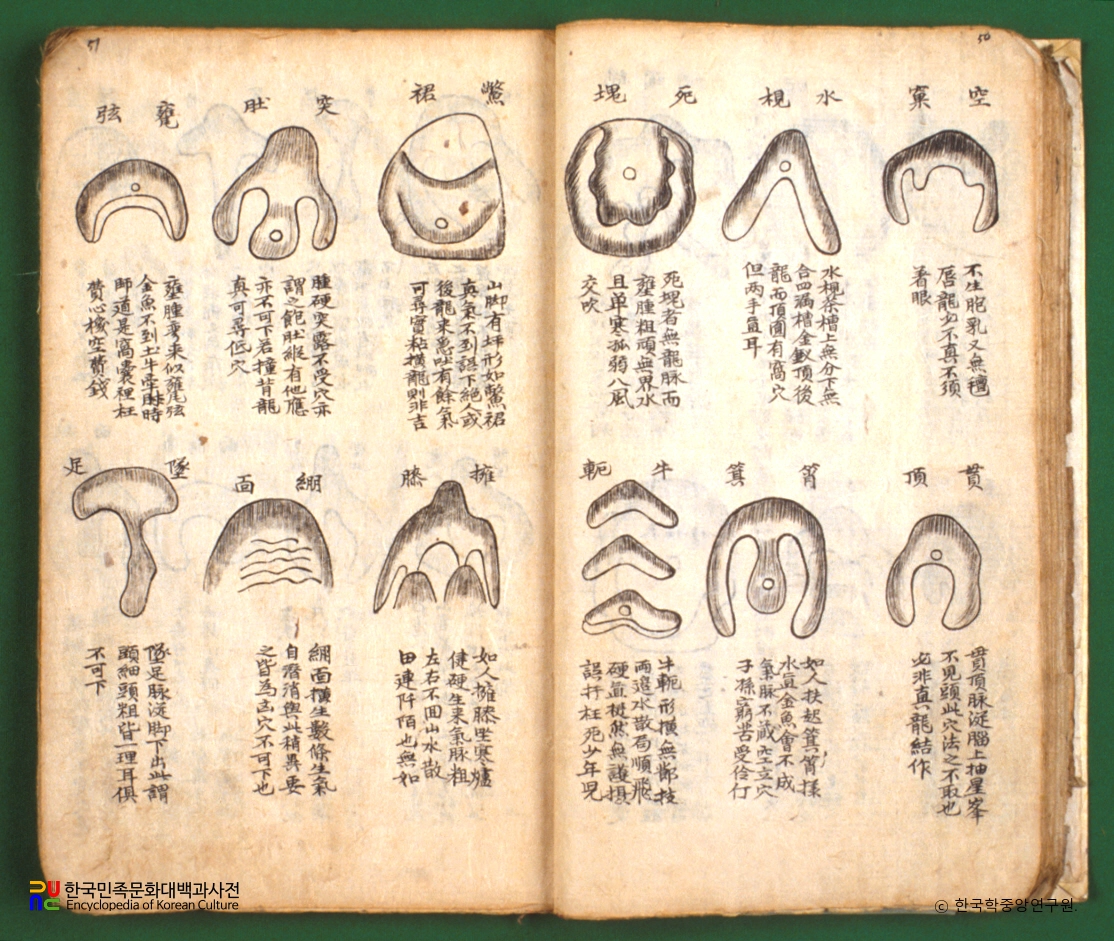 50
空窠
不生胞乳又無氊
唇龍必不真不須
着眼
水梘
水梘茶槽上無分下無
合四漏槽金釵頂後
龍而頂圓有窩穴
但两手直耳
死塊
死塊者無龍脉而
壅腫粗頑無界水
且单寒孤弱八風
交吹
貫頂
貫頂脉從腦上抽星峯
不見頭此穴法之不取也
必非真龍結作
筲箕
如人扶起箕筲樣
水直金魚會不成
氣脉不藏空立穴
子孫窮苦受伶仃
牛軛
牛軛形横無節技
两邉水散局順飛
硬直挺然無護攝
誤扞枉死少年児
51
鱉裙
山脚有坪形如鱉裙
真氣不到誤下絕人或
後龍来急吐有餘氣
可尋實粘横龍則非吉
突肚
腫硬突露不受穴亦
謂之飽肚縱有他應
亦不可下若撞背龍
真可尋低穴
甕弦
壅腫弯来似甕弦
金魚不到土牛牽時
師道是窩囊裡枉
費心機空費錢
擁膝
如人擁膝坐寒爐
健硬生来氣脉粗
左右不囬山水散
田連阡陌也無如
綳面
綳面横生數條生氣
自 消與此稍異要
之皆為凶穴不可下也
墜足
墜足脉從脚下出此謂
頭細頭粗皆一理耳俱
不可下
한국민족문화대백과사전
Encyclopedia of Korean Culture
ⓒ 한국학중앙연구원.